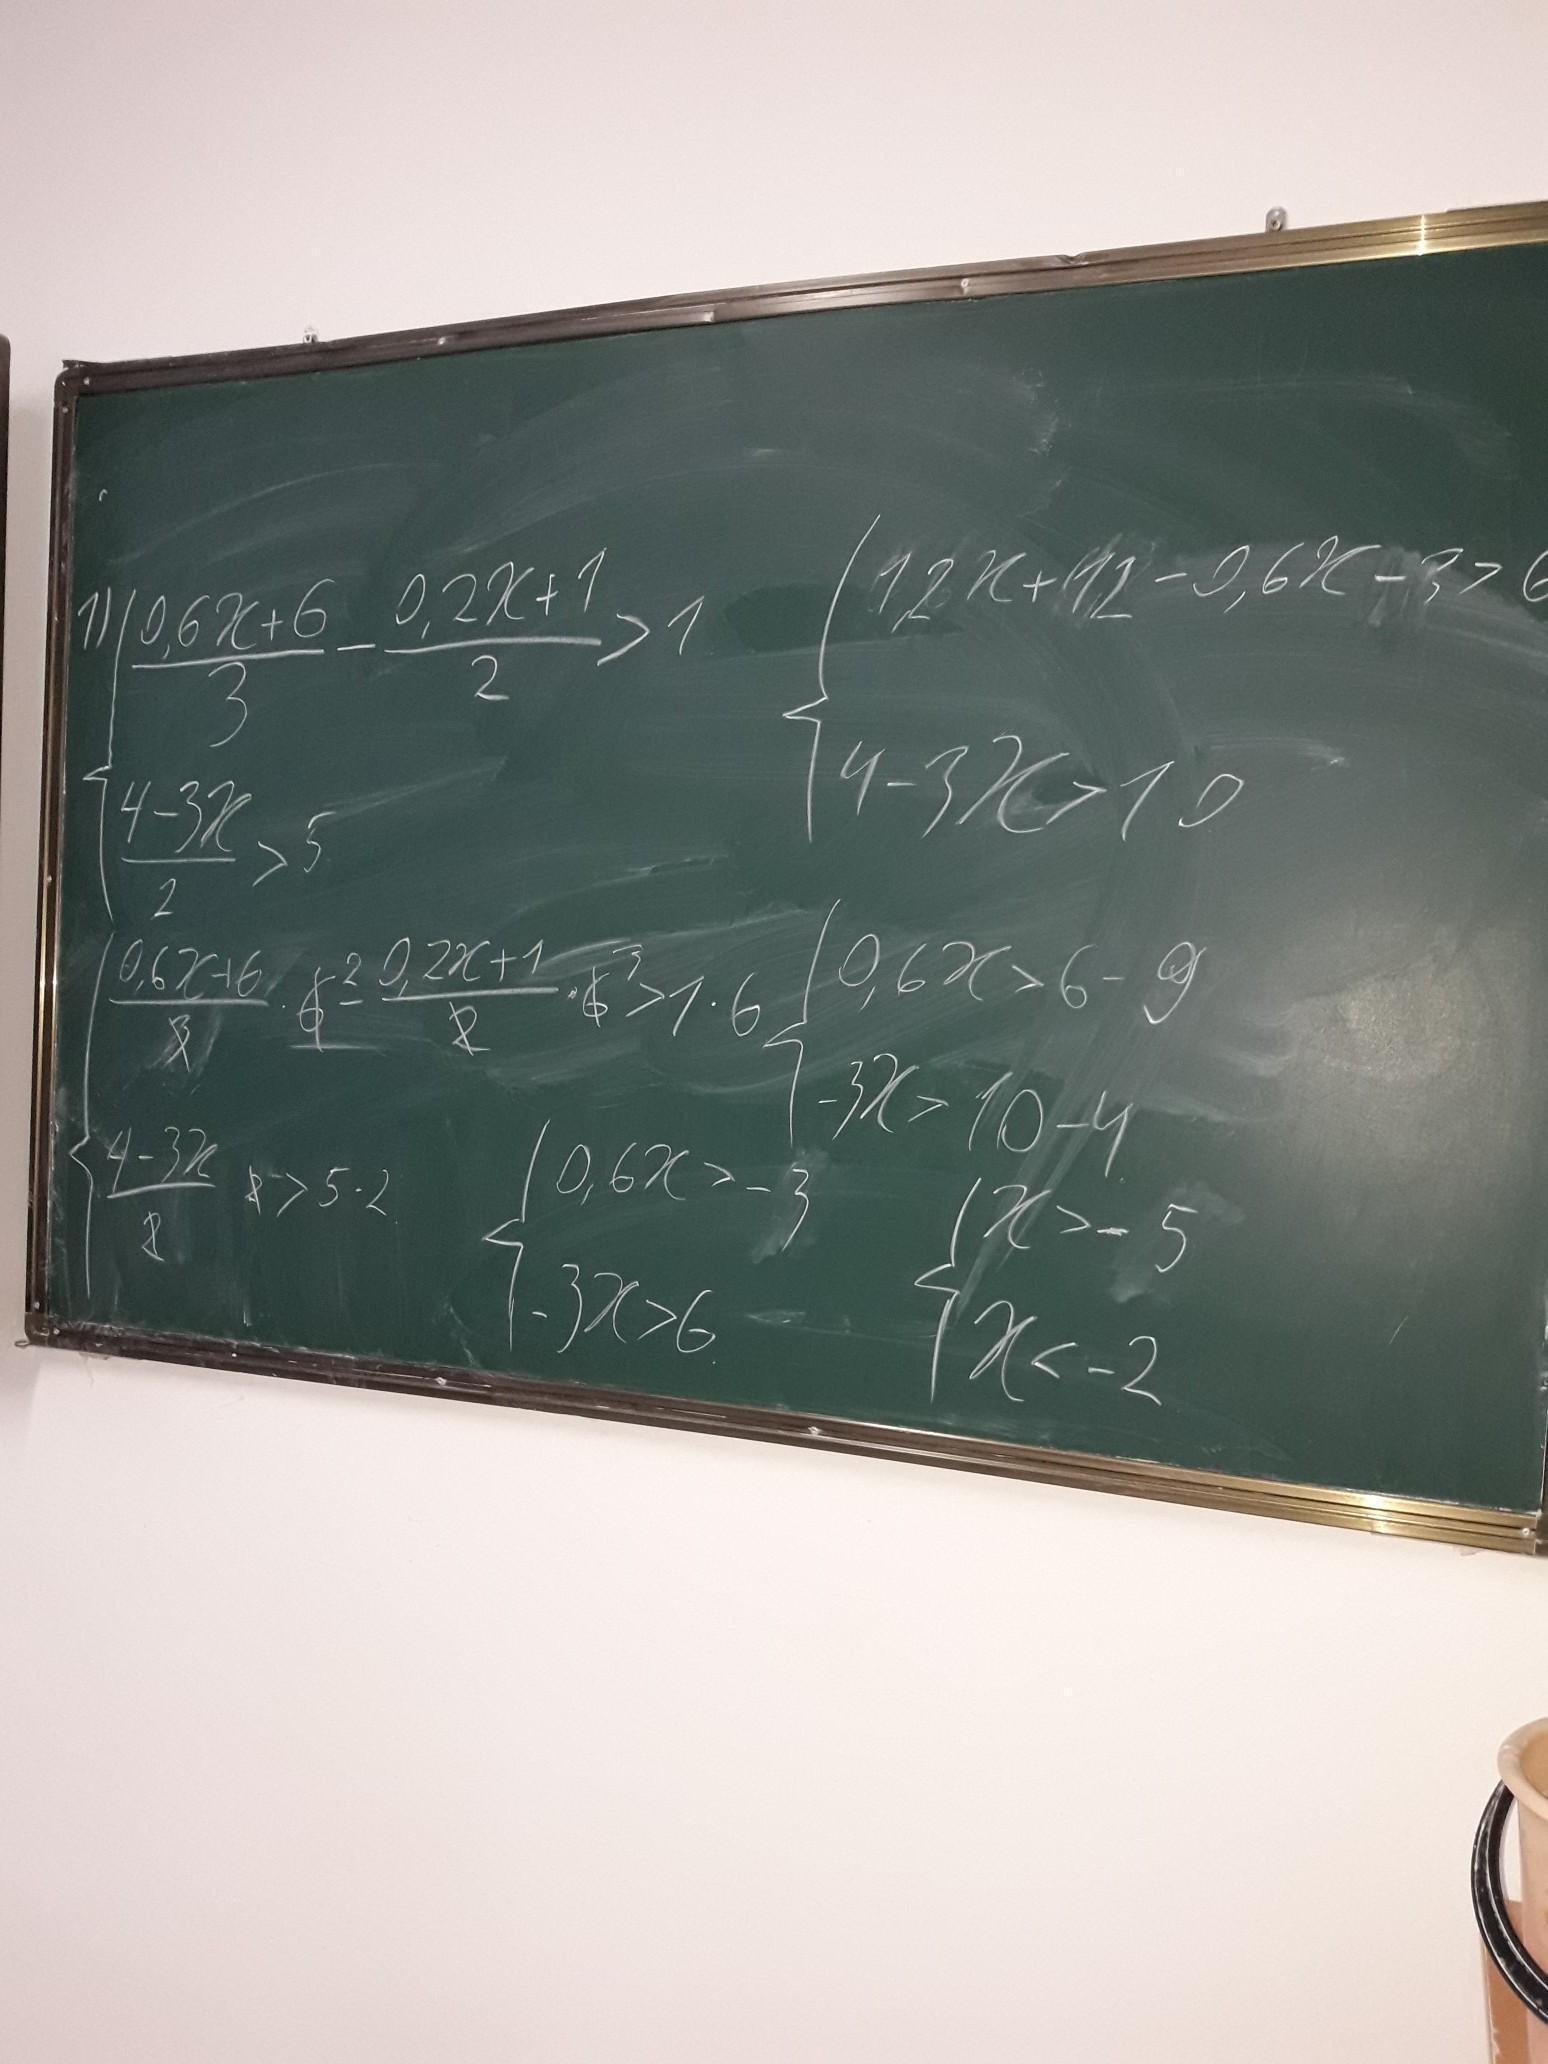 1) { (0,6x+6)/3 - (0,2x+1)/2 > 1
(4-3x)/2 > 5
{ (0,6x+6)/3 · 6² - (0,2x+1)/2 · 6³ > 1·6
(4-3x)/2 · 2 > 5·2
{ 1,2x+12-0,6x-3>6
4-3x>10
{ 0,6x>6-9
-3x>10-4
{ 0,6x>-3
-3x>6
{ x>-5
x<-2